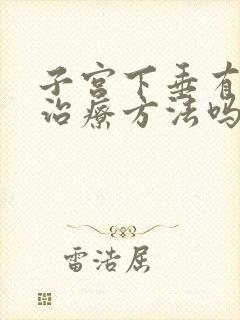 子宫下垂有
治疗方法吗
雷浩居